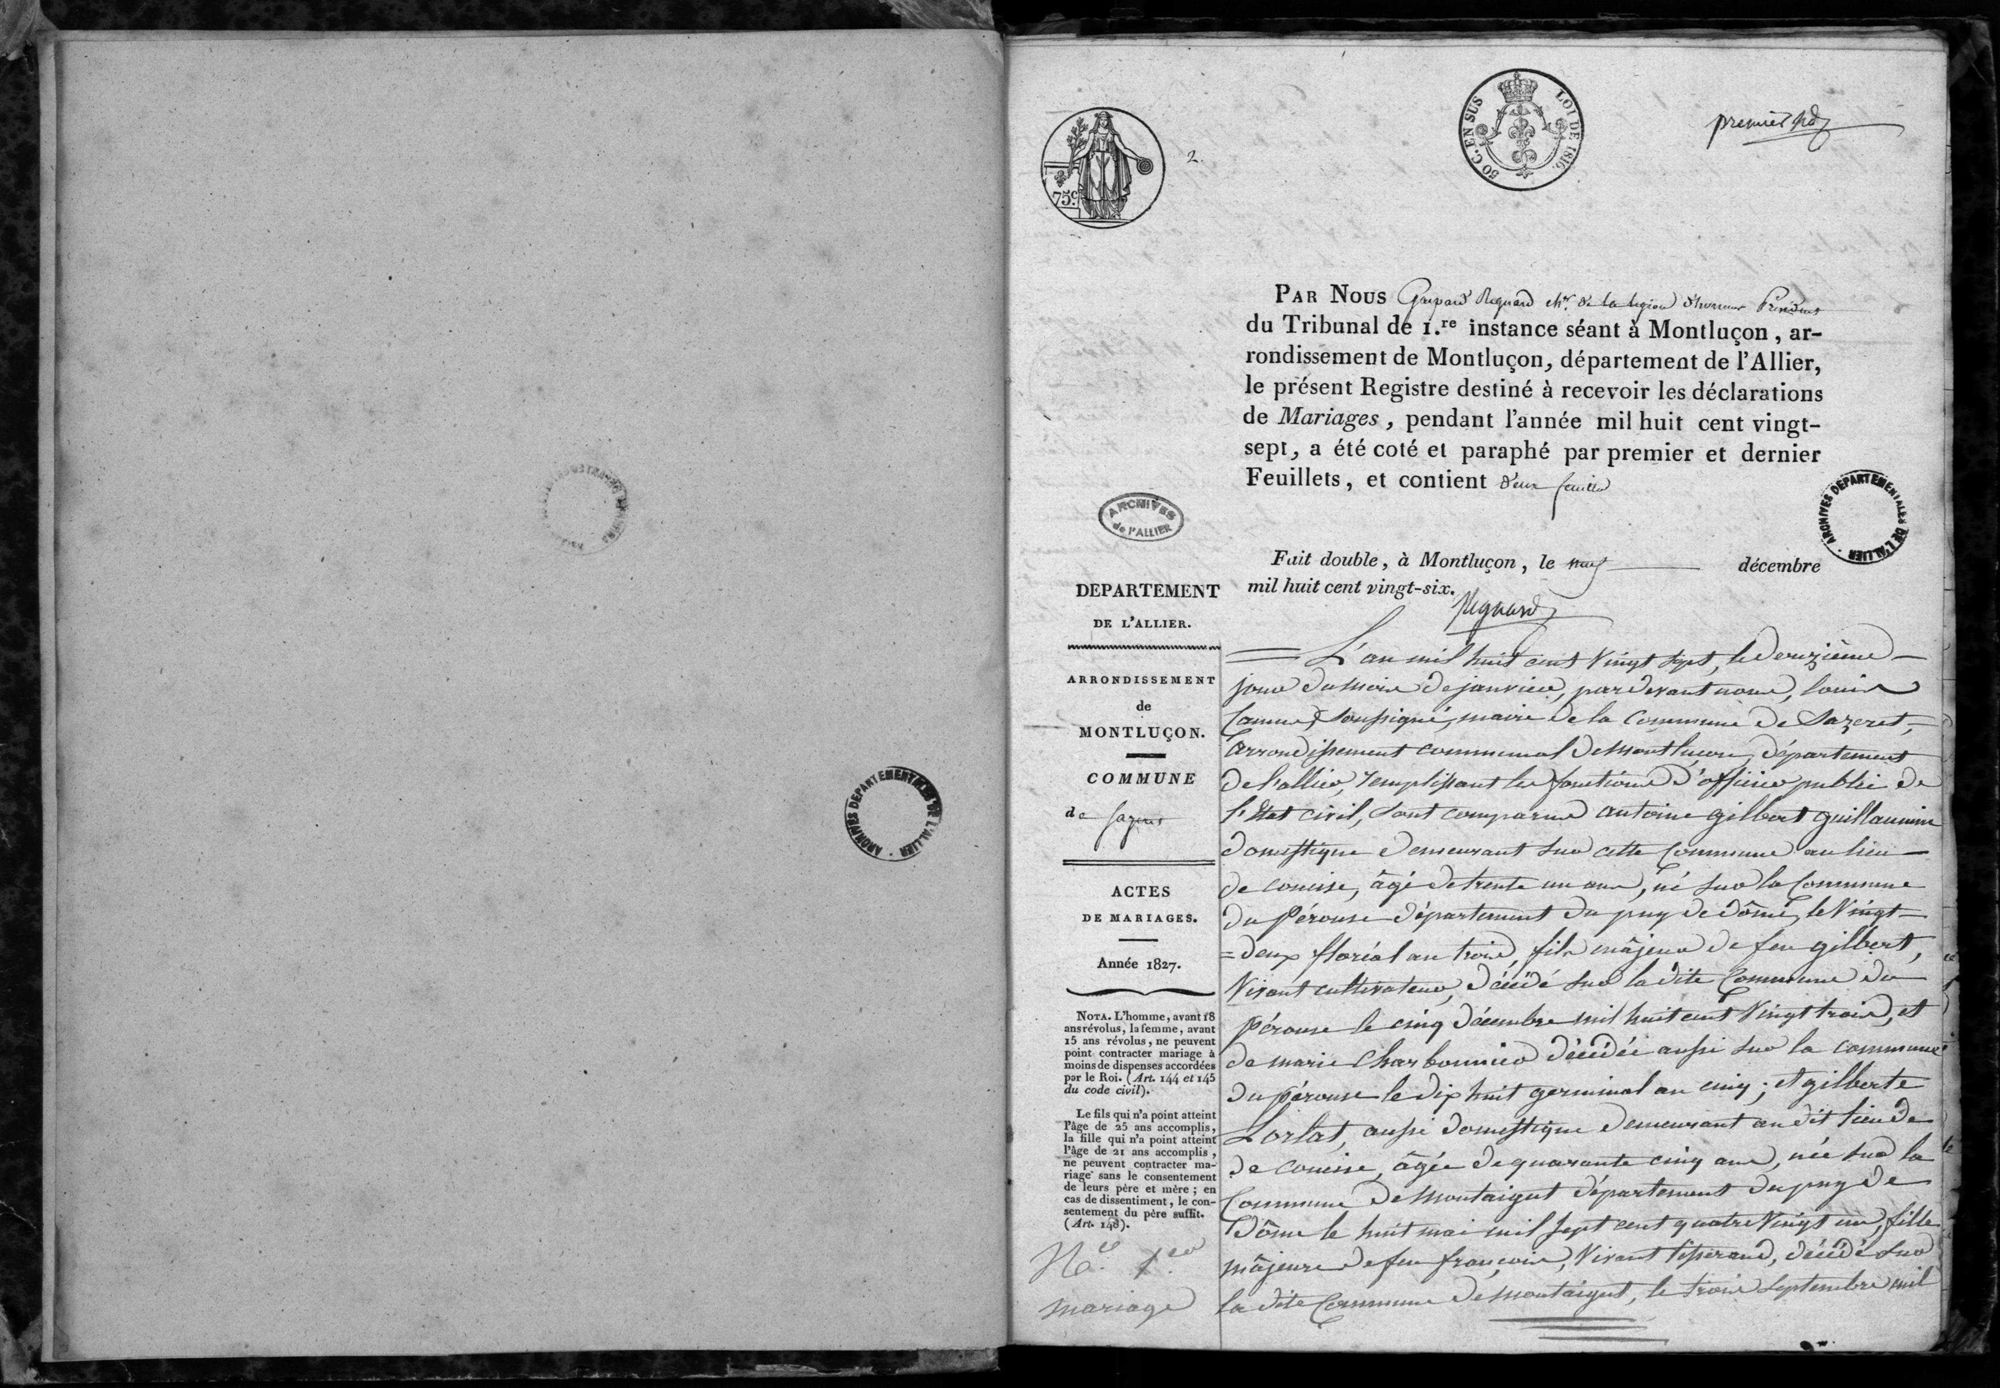 ARCHIVES DEPARTEMENTALES DE L'ALLIER
75.c
2.
50 C. EN SUS LOI DE 1816.
premier
PAR NOUS Gaspard Regnard chr. de la legion d'honneur Président
du Tribunal de 1.re instance séant à Montluçon, ar-
rondissement de Montluçon, département de l'Allier,
le présent Registre destiné à recevoir les déclarations
de Mariages, pendant l'année mil huit cent vingt-
sept, a été coté et paraphé par premier et dernier
Feuillets, et contient deux feuilles
ARCHIVES de l'ALLIER
ARCHIVES DEPARTEMENTALES DE L'ALLIER
Fait double, à Montluçon, le neuf décembre
mil huit cent vingt-six.
Regnard
DEPARTEMENT
DE L'ALLIER.
ARRONDISSEMENT
de
MONTLUÇON.
COMMUNE
de Sazeret
ACTES
DE MARIAGES.
Année 1827.
NOTA. L'homme, avant 18
ans révolus, la femme, avant
15 ans révolus, ne peuvent
point contracter mariage à
moins de dispenses accordées
par le Roi. (Art. 144 et 145
du code civil).
Le fils qui n'a point atteint
l'âge de 25 ans accomplis,
la fille qui n'a point atteint
l'âge de 21 ans accomplis,
ne peuvent contracter ma-
riage sans le consentement
de leurs père et mère; en
cas de dissentiment, le con-
sentement du père suffit.
(Art. 148).
No. 1.er
mariage
L'an mil huit cent vingt sept, le deuzième
jour du mois de janvier, pardevant nous, louis
soussigné, maire de la commune de Sazeret,
arrondissement communal de Montluçon, département
de l'allier, remplissant les fonctions d'officier public de
l'état civil, sont comparus antoine gilbert guillaumin
domestique demeurant sur cette Commune au lieu
de couise, âgé de trente un ans, né sur la Commune
du pérouse département du puy de dôme, le Vingt-
=deux floréal an trois, fils majeur de feu gilbert,
Vivant cultivateur, décédé sur la dite Commune du
pérouse le cinq décembre mil huit cent Vingt trois, et
de marie charbonnier décédée aussi sur la commune
du pérouse le dix huit germinal an cinq; et gilberte
Lorlat, aussi domestique demeurant au dit lieu de
de couise, âgée de quarante cinq ans, née sur la
Commune de Montaigut département du puy de
Dôme le huit mai mil sept cent quatre Vingt un, fille
majeure de feu françois, Vivant tisserand, décédé sur
la dite Commune de Montaigut, le trois septembre mil